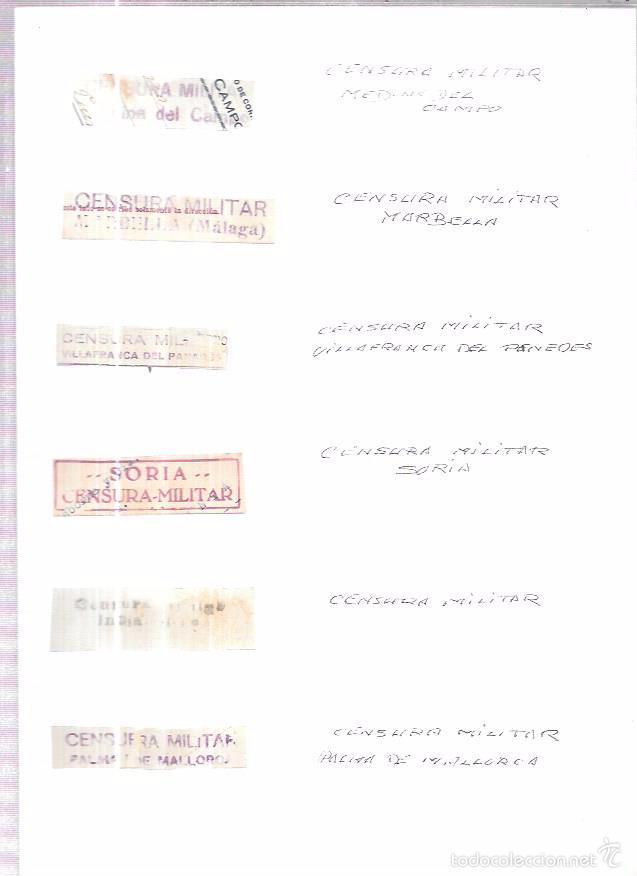 SURA MILITA
ina del Campo
O DE COR.
CAMPO
CENSURA MILITAR
MEDINA DEL
CAMPO
CENSURA MILITAR
MARBELLA (Málaga)
CENSURA MILITAR
MARBELLA
CENSURA MILITAR
VILLAFRANCA DEL PANADES
CENSURA MILITAR
VILLAFRANCA DEL PENEDES
--SORIA--
CENSURA-MILITAR
CENSURA MILITAR
SORIA
Censura
CENSURA MILITAR
CENSURA MILITAR
PALMA DE MALLORCA
CENSURA MILITAR
PALMA DE MALLORCA
todocoleccion.net